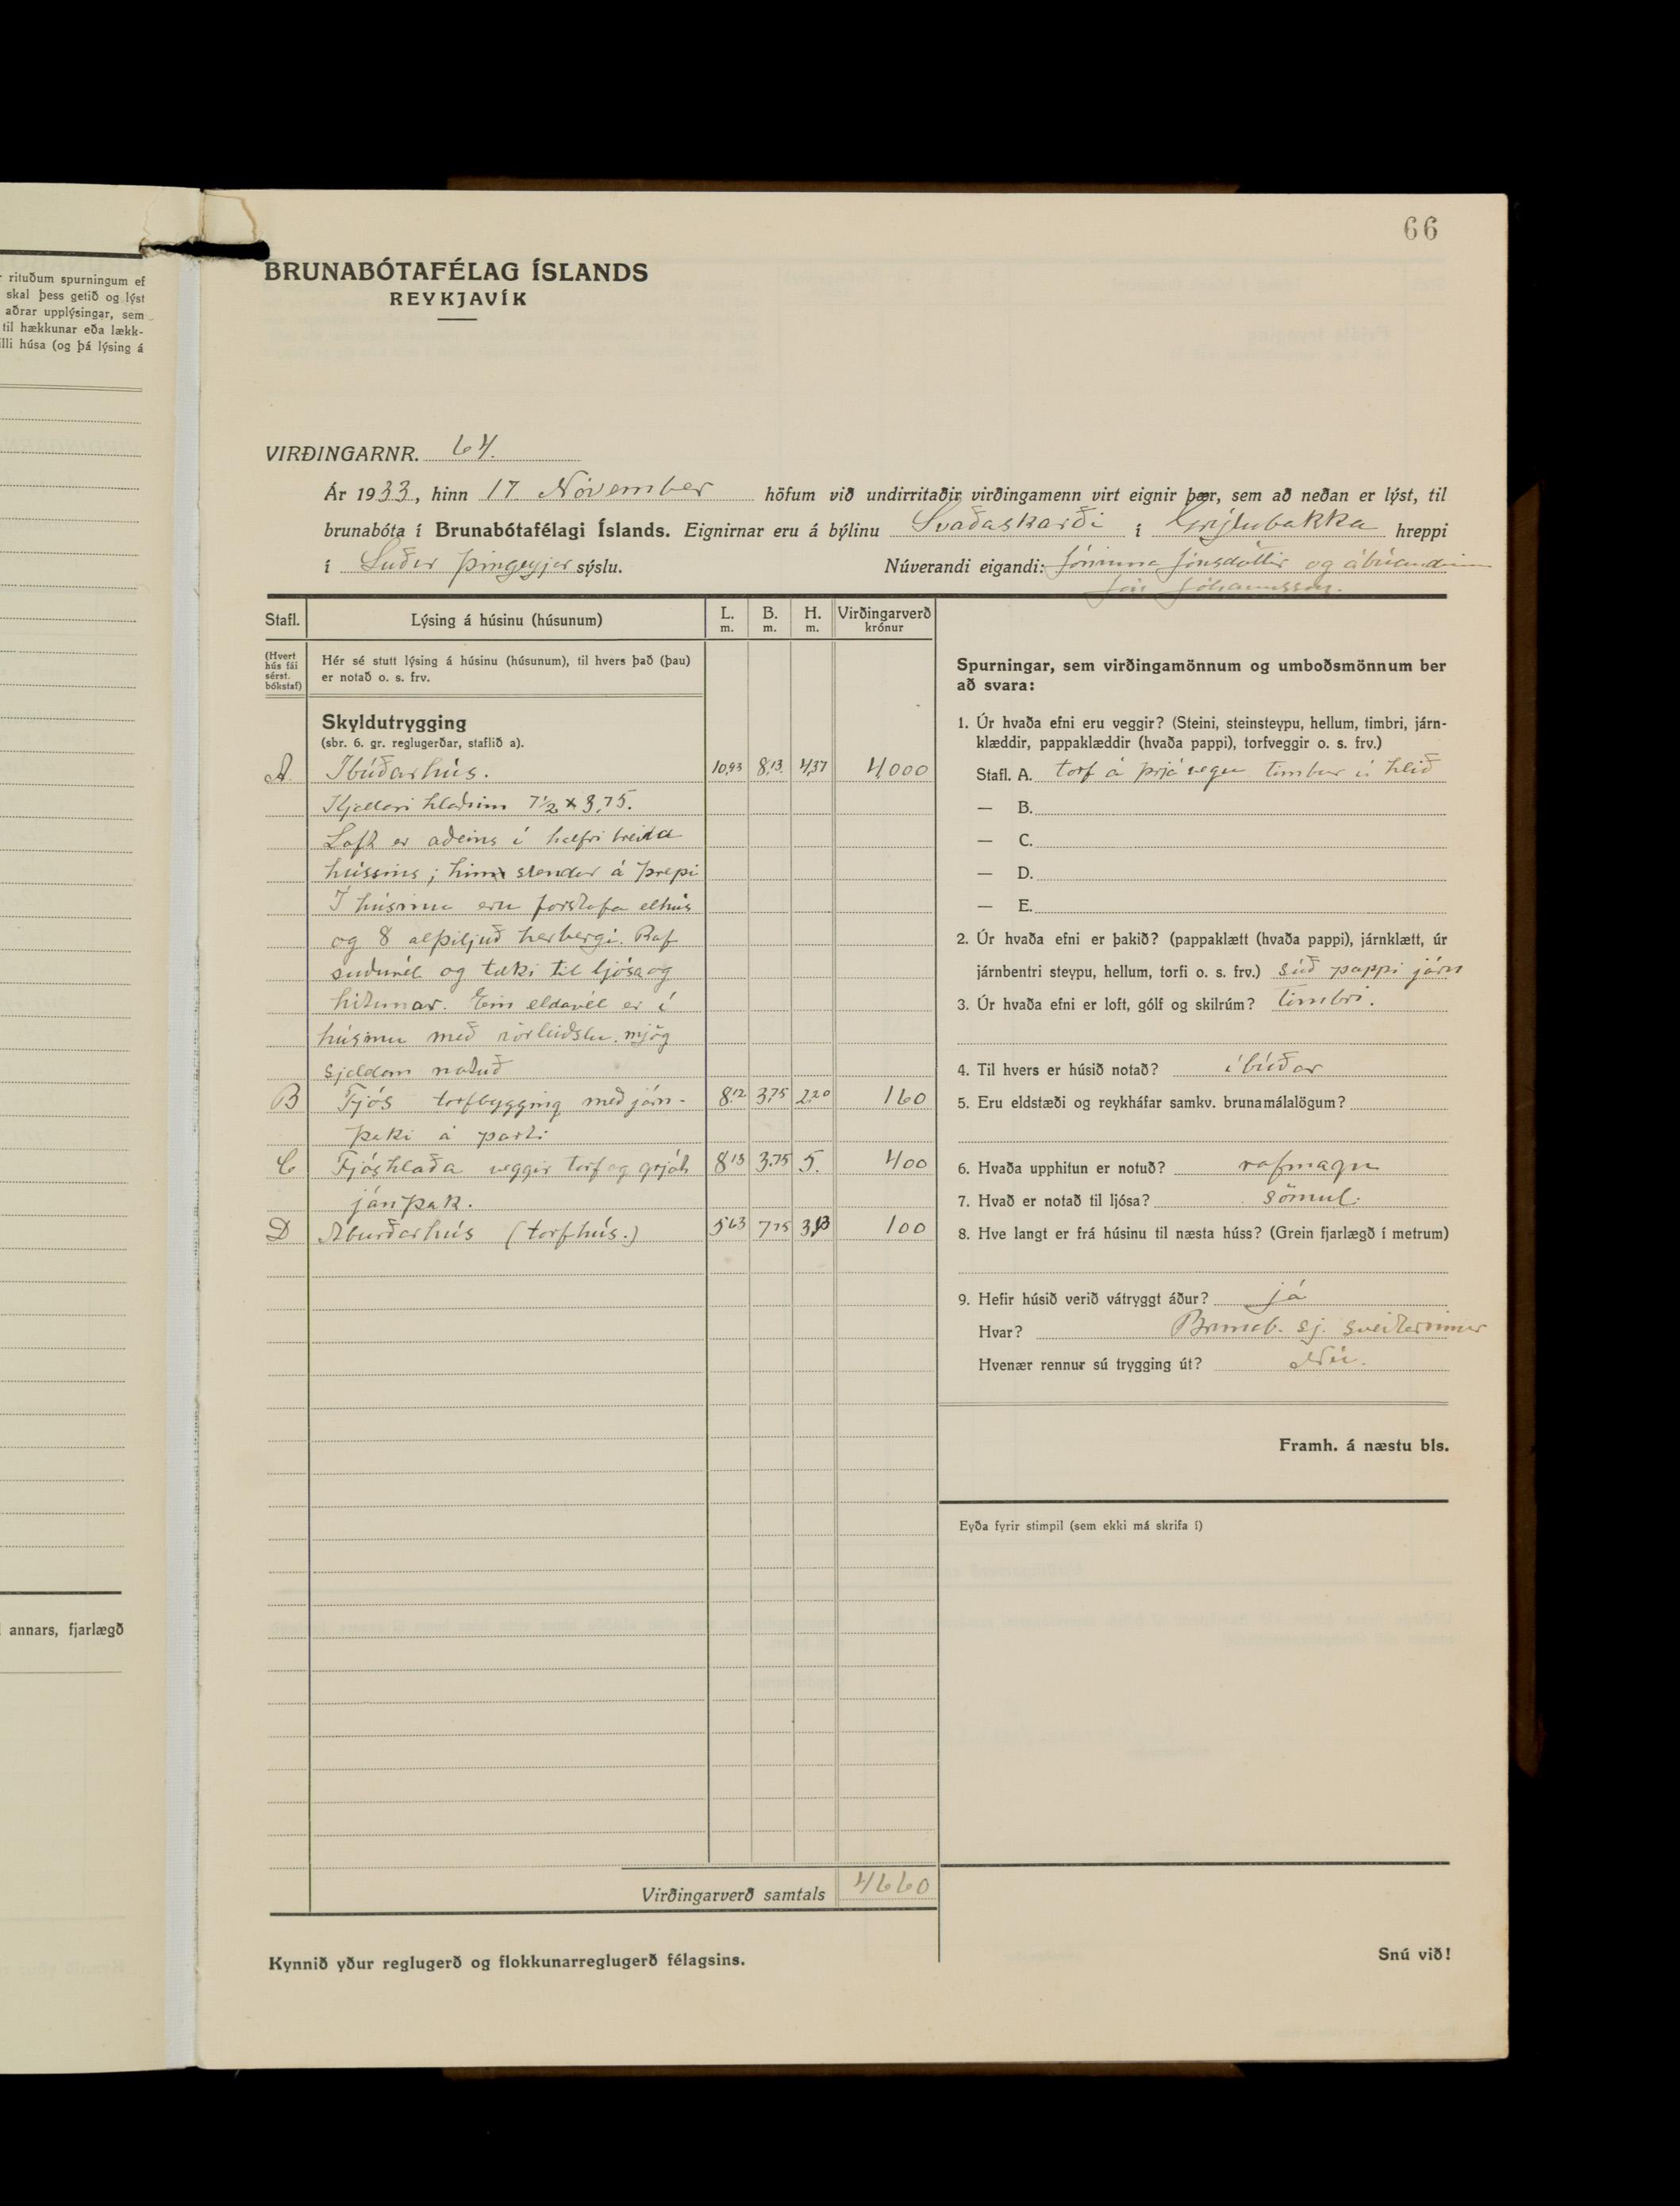 66
r rituðum spurningum ef
skal þess getið og lýst
aðrar upplýsingar, sem
til hækkunar eða lækk-
illi húsa (og þá lýsing á
annars, fjarlægð
BRUNABÓTAFÉLAG ÍSLANDS
REYKJAVÍK
VIRÐINGARNR. 64.
Ár 1933, hinn 17 Nóvember höfum við undirritaðir virðingamenn virt eignir þær, sem að neðan er lýst, til
brunabóta í Brunabótafélagi Íslands. Eignirnar eru á býlinu Svaðaskarði í Grýtubakka hreppi
í Suður þingeyjar sýslu. Núverandi eigandi: Jónina Jónsdóttir og ábúandinn
Jón Jóhannsson.
Stafl. Lýsing á húsinu (húsunum) L. m. B. m. H. m. Virðingarverð krónur
(Hvert hús fái sérst. bókstaf)
Hér sé stutt lýsing á húsinu (húsunum), til hvers það (þau)
er notað o. s. frv.
Skyldutrygging
(sbr. 6. gr. reglugerðar, staflið a).
A Íbúðarhús. 10,93 8,13 4,37 4000
Kjallari hlaðinn 7 1/2 x 3,75.
Loft er aðeins í hálfri breidd
hússins; hinn stendur á þrepi
Í húsinu eru forstofa elhús
og 8 alþiljuð herbergi. Raf
suðuvél og tæki til ljósa og
hitunar. Ein eldavél er í
húsinu með rörleiðslu. mjög
sjeldan notuð
B Fjós torfbygging með járn- 8,12 3,75 2,20 160
þaki á parti
C Fjóshlaða veggir torf og grjót 8,13 3,75 5. 400
járnþak.
D Áburðarhús (torfhús.) 5,63 7,75 3,13 100
Virðingarverð samtals 4660
Kynnið yður reglugerð og flokkunarreglugerð félagsins.
Spurningar, sem virðingamönnum og umboðsmönnum ber
að svara:
1. Úr hvaða efni eru veggir? (Steini, steinsteypu, hellum, timbri, járn-
klæddir, pappaklæddir (hvaða pappi), torfveggir o. s. frv.)
Stafl. A. torf á þrjá vegu timbur á hlið
— B.
— C.
— D.
— E.
2. Úr hvaða efni er þakið? (pappaklætt (hvaða pappi), járnklætt, úr
járnbentri steypu, hellum, torfi o. s. frv.) súð pappi járn
3. Úr hvaða efni er loft, gólf og skilrúm? timbri.
4. Til hvers er húsið notað? íbúðar
5. Eru eldstæði og reykháfar samkv. brunamálalögum?
6. Hvaða upphitun er notuð? rafmagn
7. Hvað er notað til ljósa? sömul.
8. Hve langt er frá húsinu til næsta húss? (Grein fjarlægð í metrum)
9. Hefir húsið verið vátryggt áður? já
Hvar? Brunab. sj. sveitarinnar
Hvenær rennur sú trygging út? Nú.
Framh. á næstu bls.
Eyða fyrir stimpil (sem ekki má skrifa í)
Snú við!